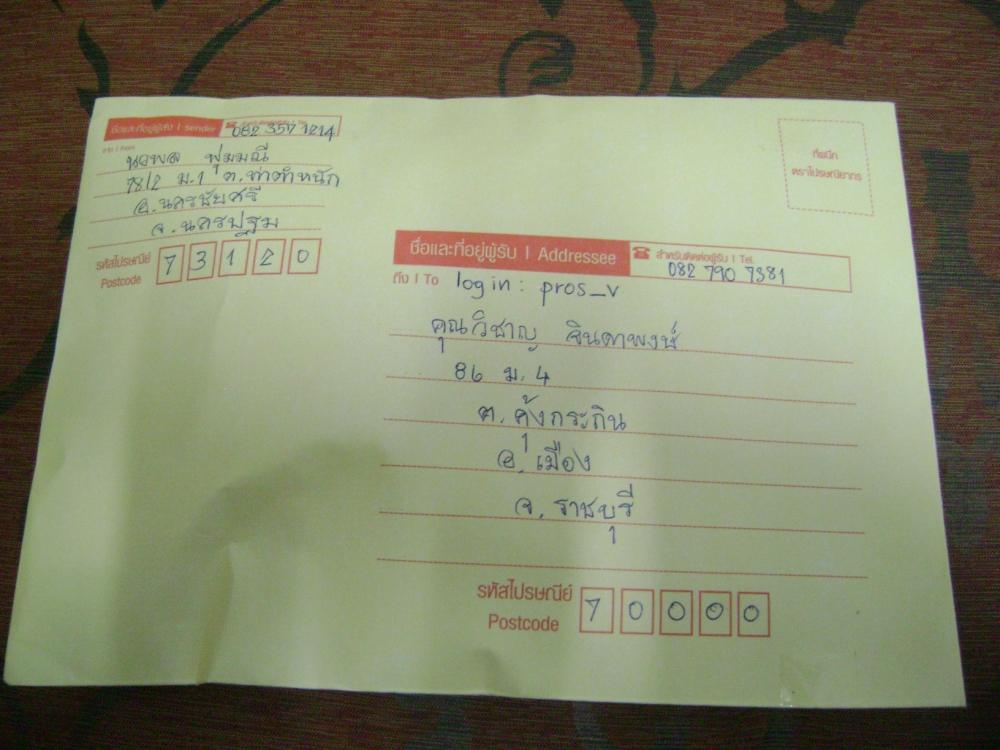 ชื่อและที่อยู่ผู้ส่ง | sender
สำหรับติดต่อผู้ส่ง | Tel.
082 357 1214
จาก | From
นวพล พุ่มมณี
78/2 ม.1 ต.ท่าตำหนัก
อ.นครชัยศรี
จ.นครปฐม
รหัสไปรษณีย์
Postcode
7 3 1 2 0
ที่ผนึก
ตราไปรษณียากร
ชื่อและที่อยู่ผู้รับ | Addressee
สำหรับติดต่อผู้รับ | Tel.
082 790 7381
ถึง | To login: pros_v
คุณวิชาญ จินดาพงษ์
86 ม.4
ต.คุ้งกระถิน
อ.เมือง
จ.ราชบุรี
รหัสไปรษณีย์
Postcode
7 0 0 0 0